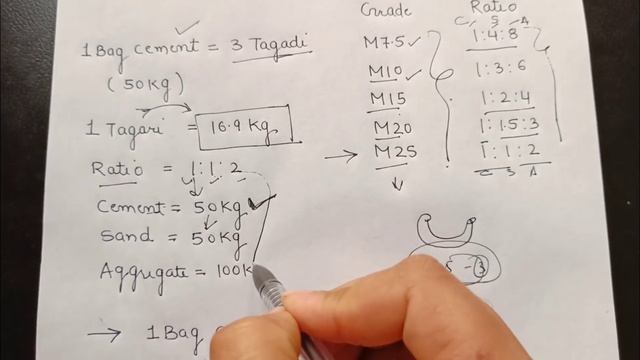 1 Bag cement = 3 Tagadi
(50Kg)
1 Tagari = 16.9 Kg
Ratio = 1:1:2
Cement = 50Kg
Sand = 50Kg
Aggregate = 100K
→ 1 Bag
Grade Ratio
C S A
M7.5 1:4:8
M10 1:3:6
M15 1:2:4
M20 1:1.5:3
→ M25 1:1:2
C S A
- 3